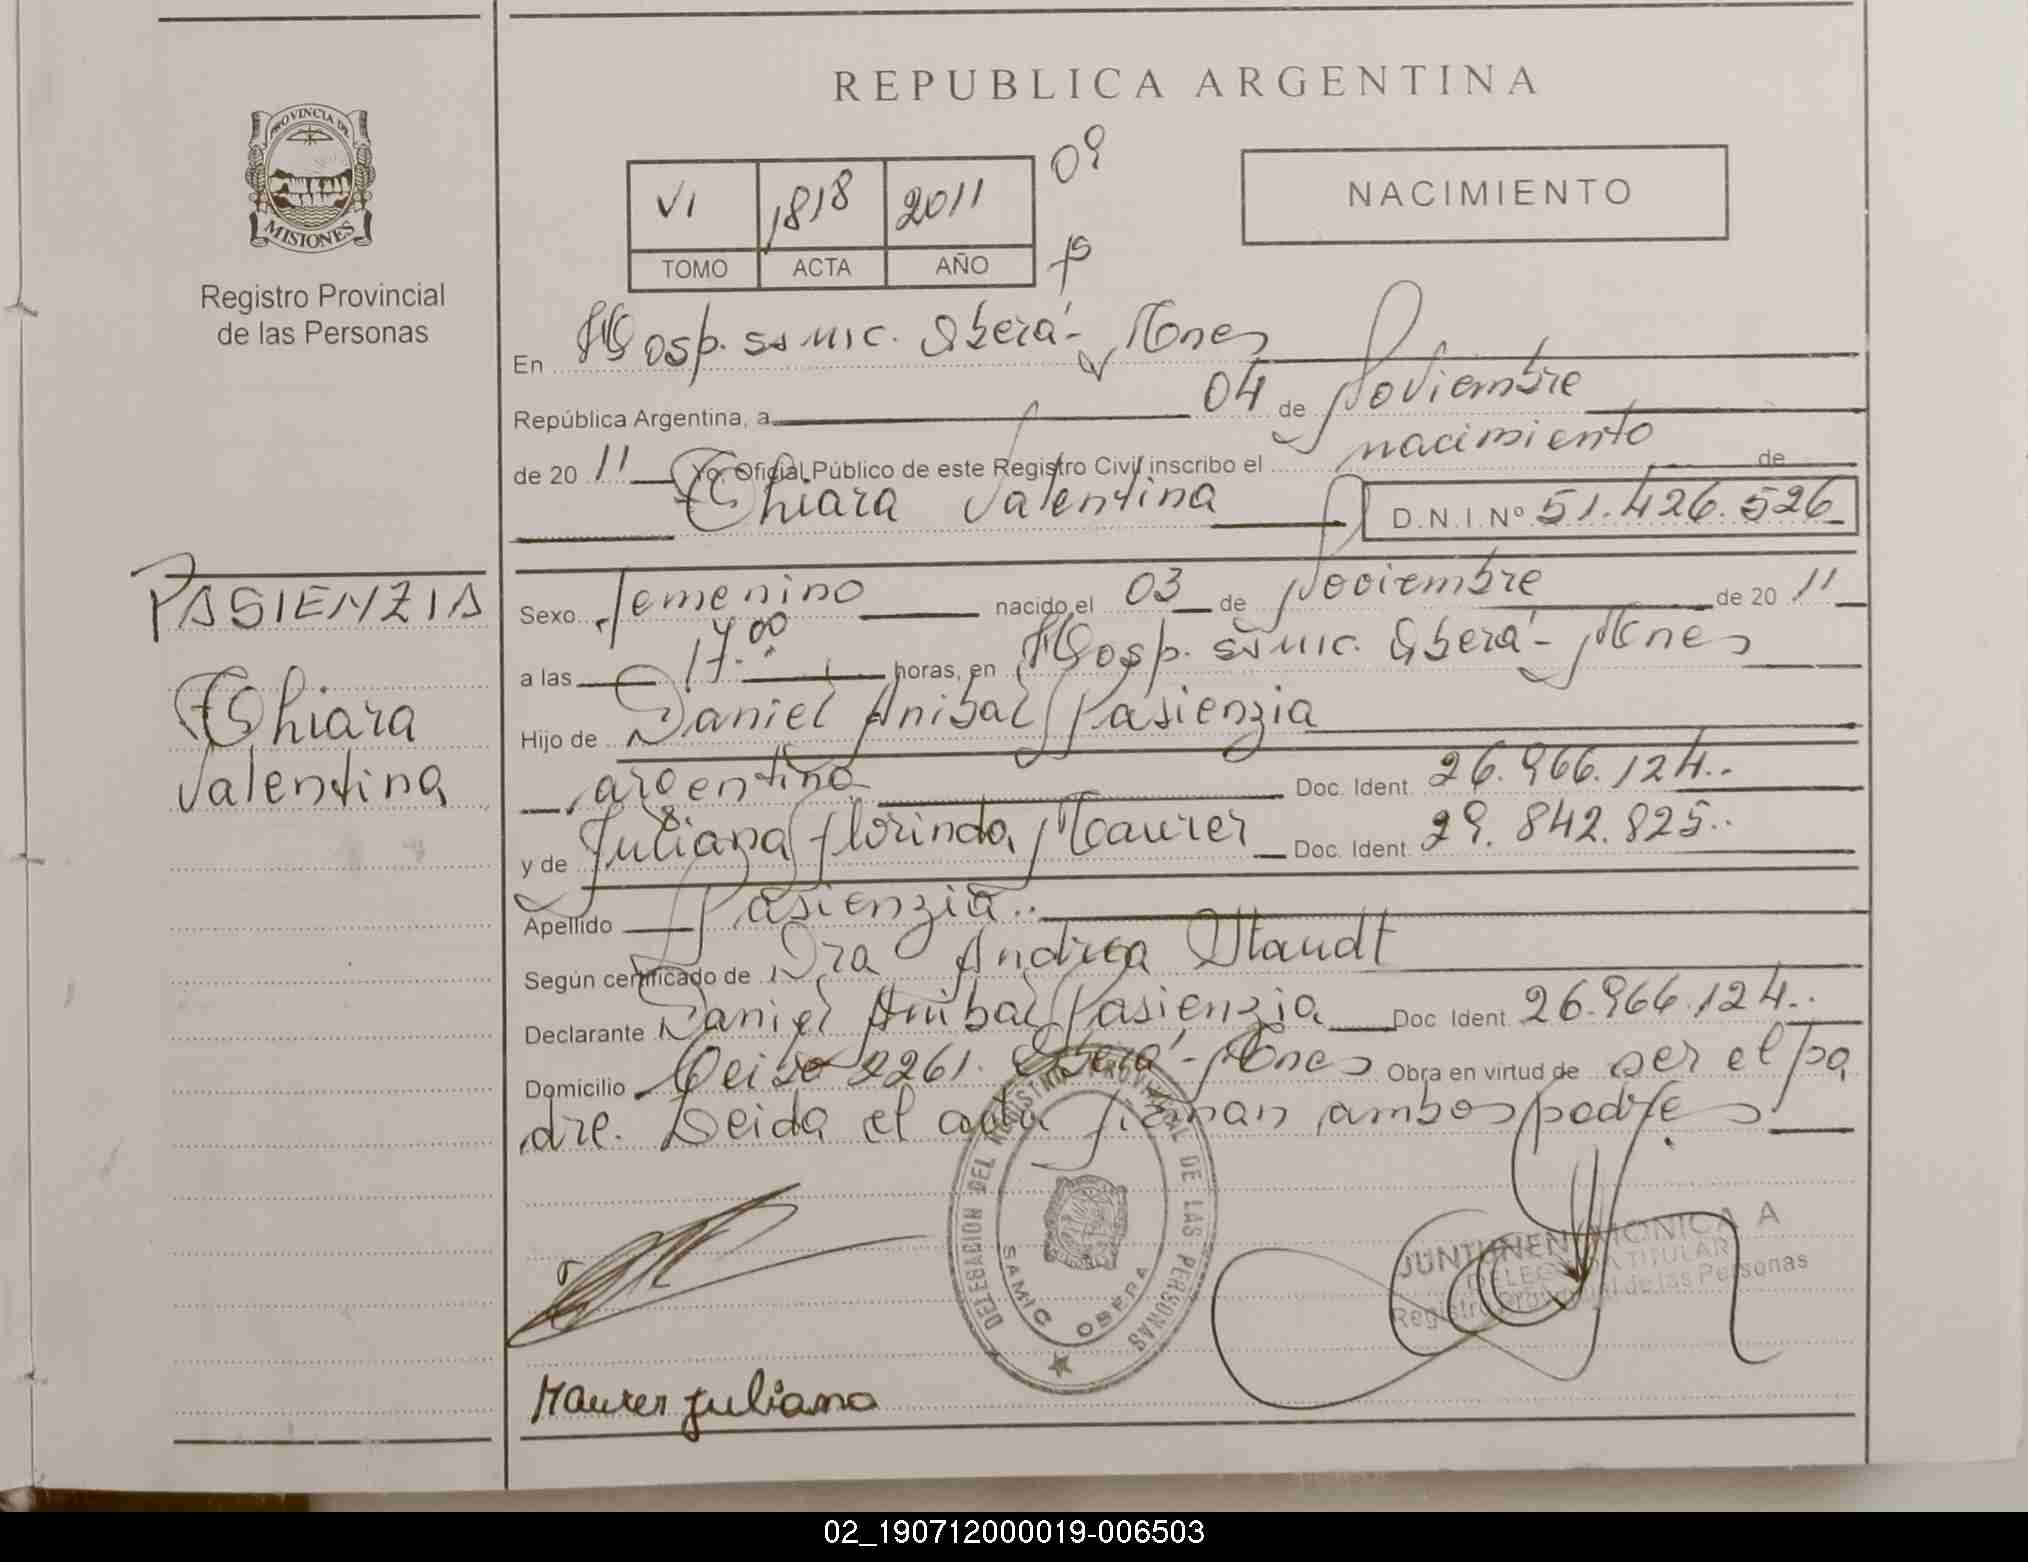 REPUBLICA ARGENTINA
PROVINCIA DE
MISIONES
Registro Provincial
de las Personas
VI 1818 2011
TOMO ACTA AÑO
NACIMIENTO
En Hosp. SAMIC. Oberá - Mnes
República Argentina, a 04 de Noviembre
de 20 11 Yo, Oficial Público de este Registro Civil inscribo el nacimiento de
Thiara Valentina D.N.I. Nº 51.426.526
PASIENZIA
Thiara
Valentina
Sexo Femenino nacido el 03 de Noviembre de 20 11
a las 17.00 horas, en Hosp. SAMIC. Oberá - Mnes
Hijo de Daniel Anibal Pasienzia
argentino Doc. Ident. 26.966.124..
y de Juliana Florinda Maurer Doc. Ident. 29.842.825..
Apellido Pasienzia..
Según certificado de Dra Andrea Staudt
Declarante Daniel Anibal Pasienzia Doc. Ident. 26.966.124..
Domicilio 2261. Oberá - Mnes Obra en virtud de ser el pa
dre. Leida el acta firman ambos padres
DELEGACION DEL REGISTRO PROVINCIAL DE LAS PERSONAS
SAMIC OBERA
JUNTUNEN MONICA A
DELEGADA TITULAR
Registro Provincial de las Personas
Maurer Juliana
02_190712000019-006503